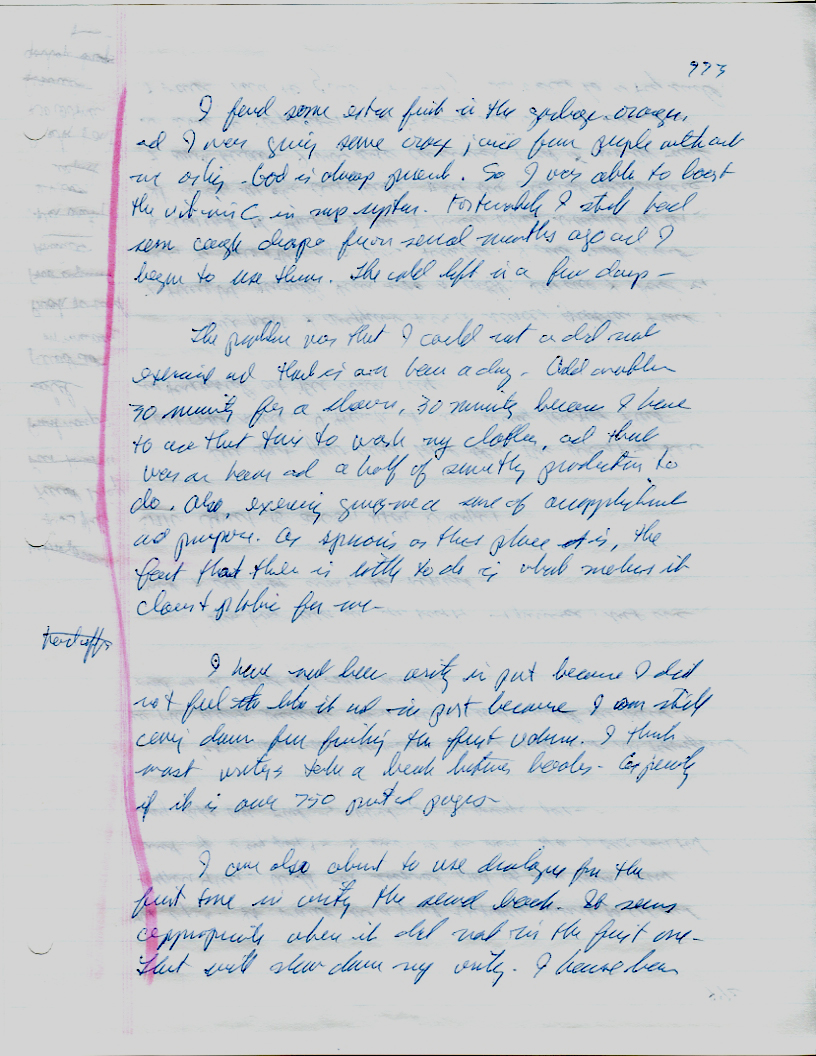 973
I found some extra fruit in the garbage - oranges,
ad I was giving some orange juice from people without
me asking. God is always present. So I was able to boost
the vitamin C in my system. Fortunately I still had
some cough drops from several months ago ad I
began to use them. The cold left in a few days -
The problem was that I could not ad did not
exercise ad that is an hour a day. Add another
30 minutes for a shower, 30 minutes because I have
to use that time to wash my clothes, ad that
was an hour ad a half of something productive to
do. Also, exercising gives me a sense of accomplishment
ad purpose. As spacious as this place is, the
fact that there is little to do is what makes it
claustrophobic for me -
I have not been writing in part because I did
not feel like it ad in part because I am still
coming down from finishing the first volume. I think
most writers take a break between books - Especially
if it is over 750 printed pages -
I am also about to use dialogue for the
first time in writing the second book. It seems
appropriate when it did not in the first one -
That will slow down my writing. I have been